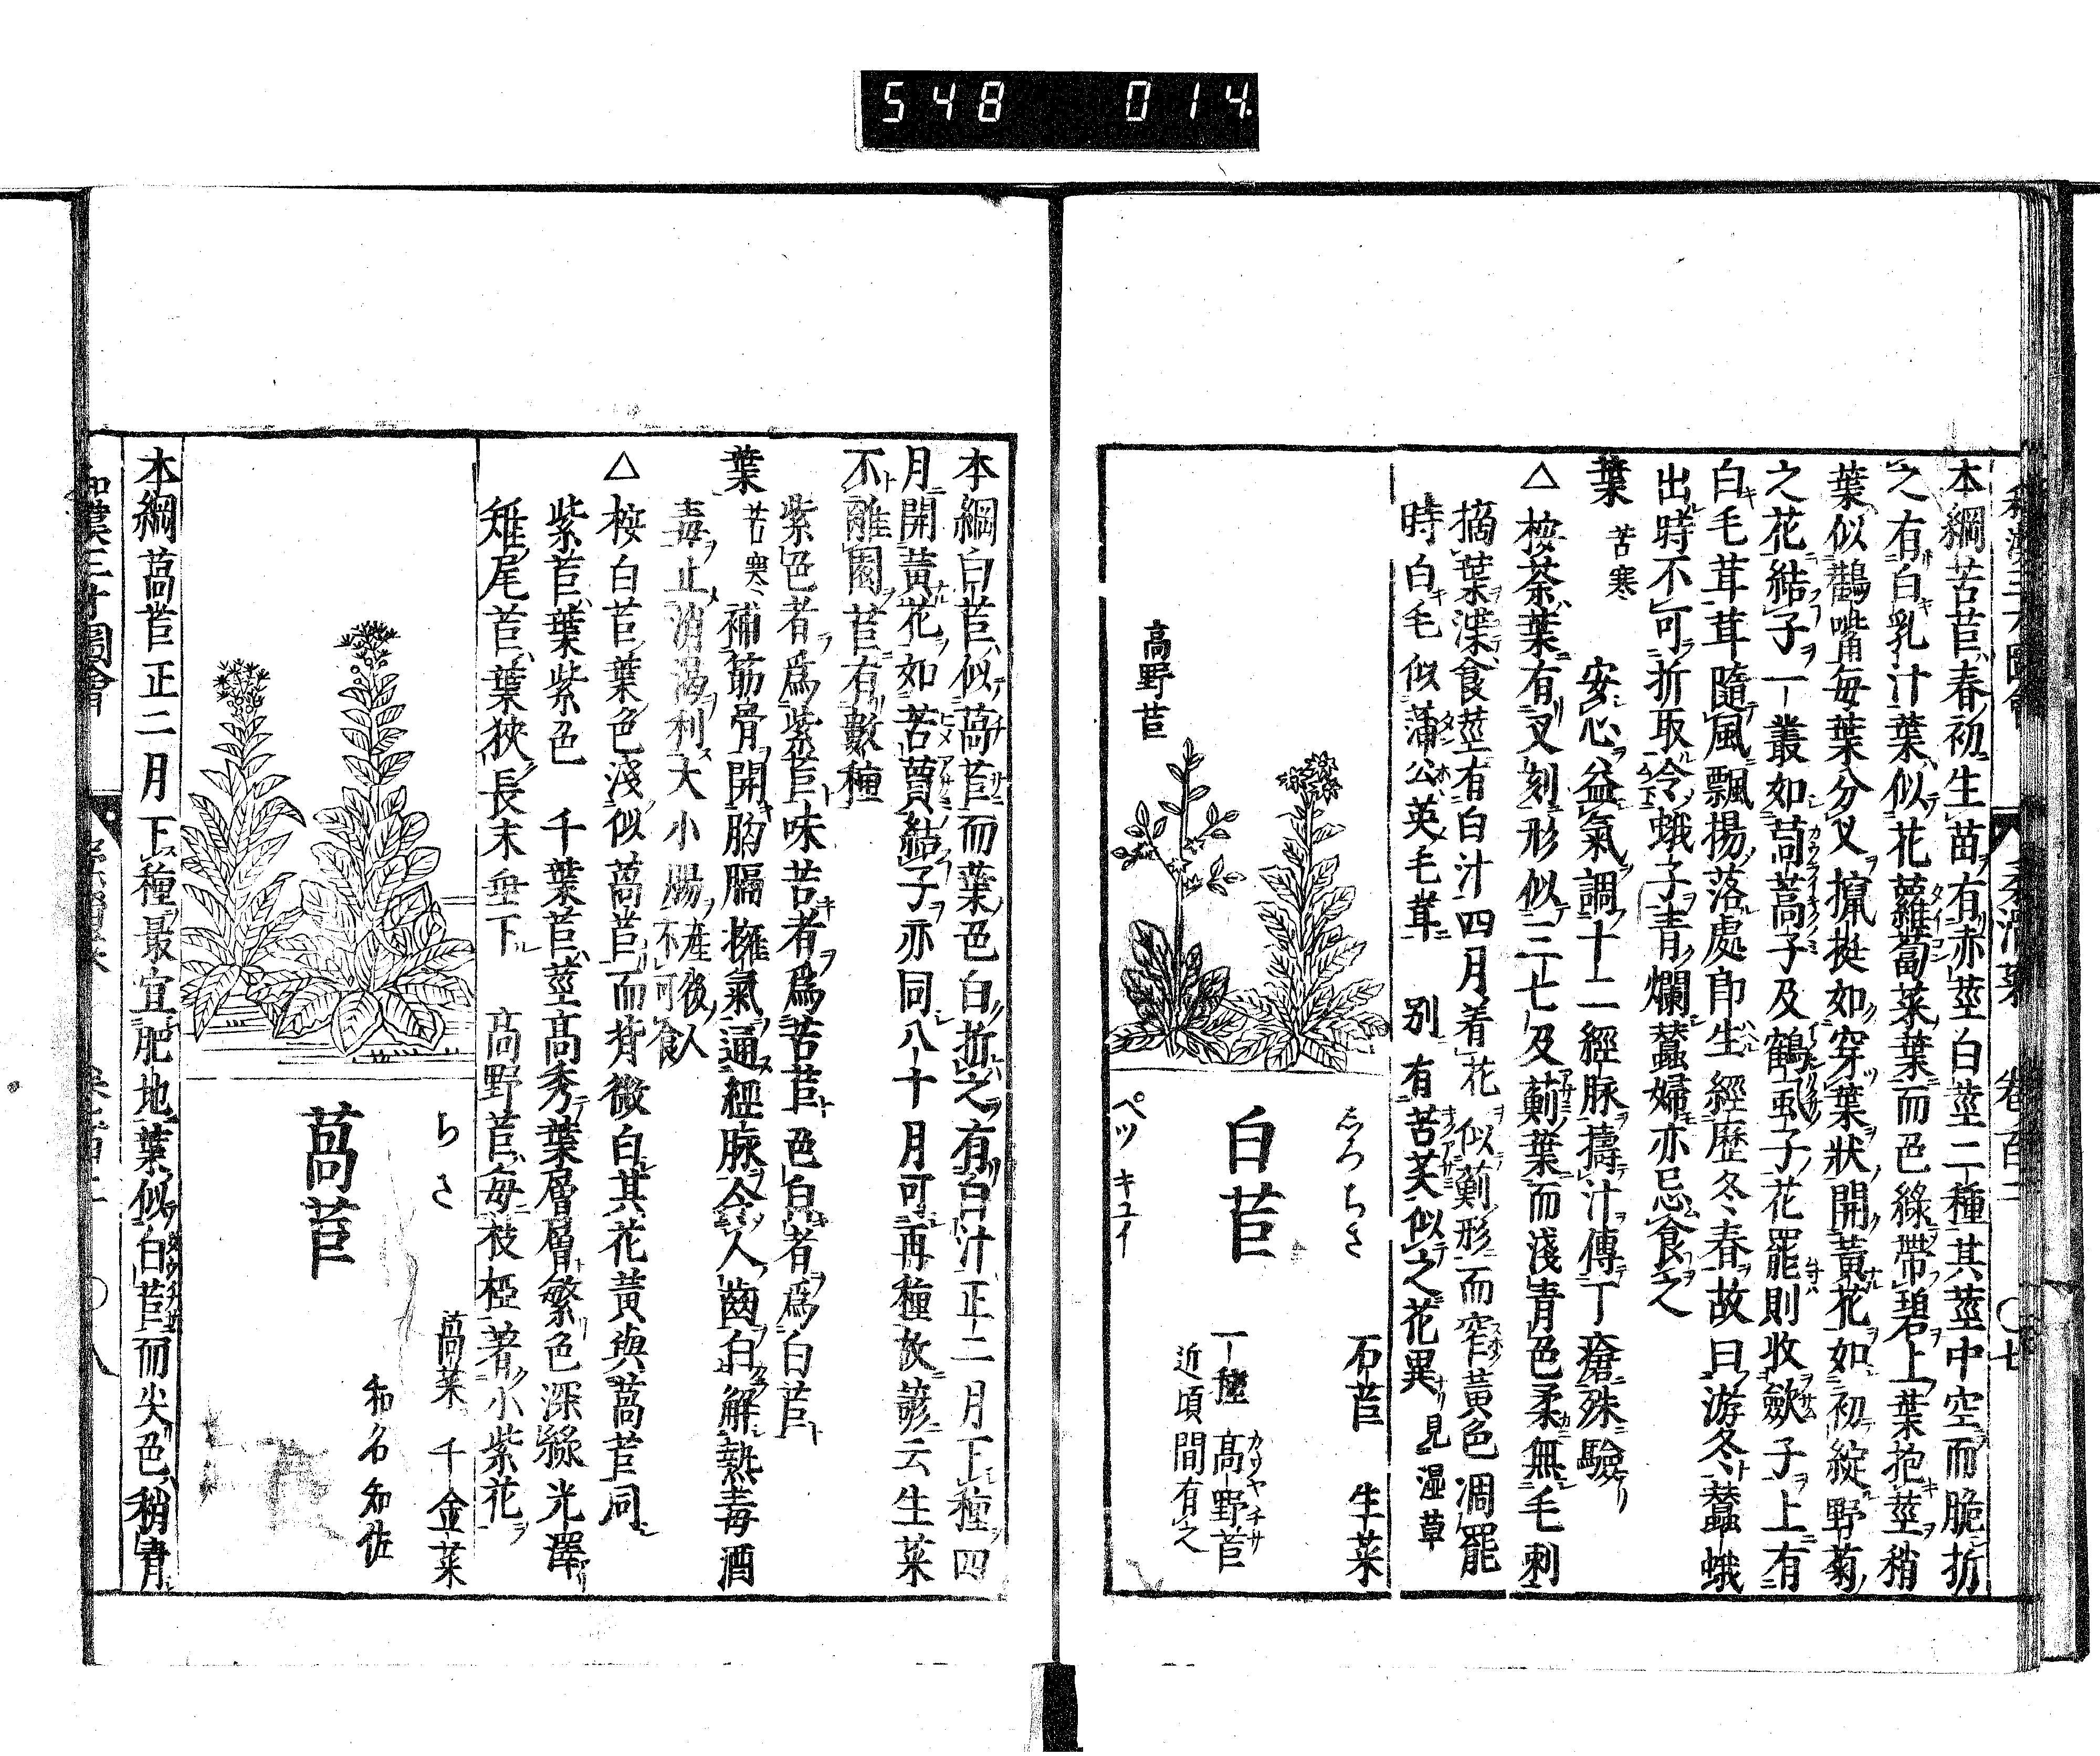 548 014.
本綱苦苣春初生苗有赤莖白莖二種其莖中空而脆折
之有白乳汁葉似花蘿蔔菜葉而色綠帶碧上葉抱莖稍
葉似鸛嘴每葉分叉攛挺如穿葉狀開黃花如初綻野菊
之花結子一叢如茼蒿子及鶴虱子花罷則收歛子上有
白毛茸茸隨風飄揚落處即生經歷冬春故曰游冬蠶蛾
出時不可折取令蛾子青爛蠶婦亦忌食之
葉 苦寒 安心益氣調十二經脉擣汁傅丁瘡殊驗
△ 按荼葉有叉刻形似三七及薊葉而淺青色柔無毛刺
摘葉渫食莖有白汁四月着花似薊形而窄黃色凋罷
時白毛似蒲公英毛茸 別有苦芺似之花異 見湿草
高野苣
白苣
しろちさ
石苣 生菜
一種 高野苣
近頃間有之
ペツ キユイ
本綱白苣似萵苣而葉色白折之有白汁正二月下種四
月開黃花如苦蕒結子亦同八十月可再種故諺云生菜
不離園苣有數種
紫色者爲紫苣味苦者爲苦苣色白者爲白苣
葉 苦寒 補筋骨開胸膈擁氣通經脉令人齒白解熱毒酒
毒止消渴利大小腸 產後人不可食
△ 按白苣葉色淺似萵苣而背微白其花黃與萵苣同
紫苣葉紫色 千葉苣莖高秀葉層層繁色深綠光澤
雉尾苣葉狹長末垂下 高野苣每枝椏著小紫花
萵苣
ちさ
萵菜 千金菜
和名知佐
本綱萵苣正二月下種最宜肥地葉似白苣而尖色稍青